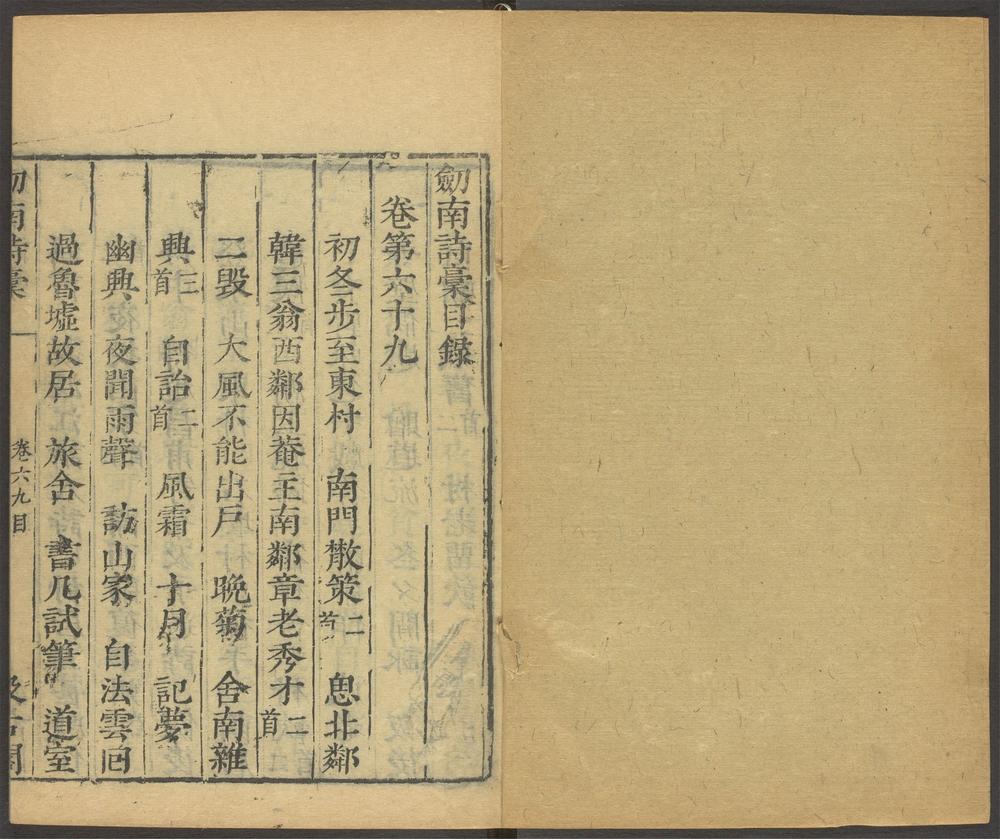 劒南詩稾目錄
卷第六十九
初冬步至東村　南門散策二首　思北鄰
韓三翁西鄰因菴主南鄰章老秀才二首
二毀　大風不能出戶　晚菊　舍南雜
興三首　自詒二首　風霜　十月　記夢
幽興　夜聞雨聲　訪山家　自法雲回
過魯墟故居　旅舍　書几試筆　道室
南詩稾　卷六九目